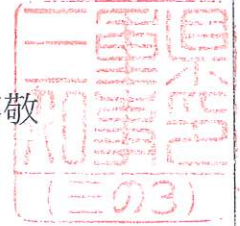 敬
三重県
知事印
(三の3)